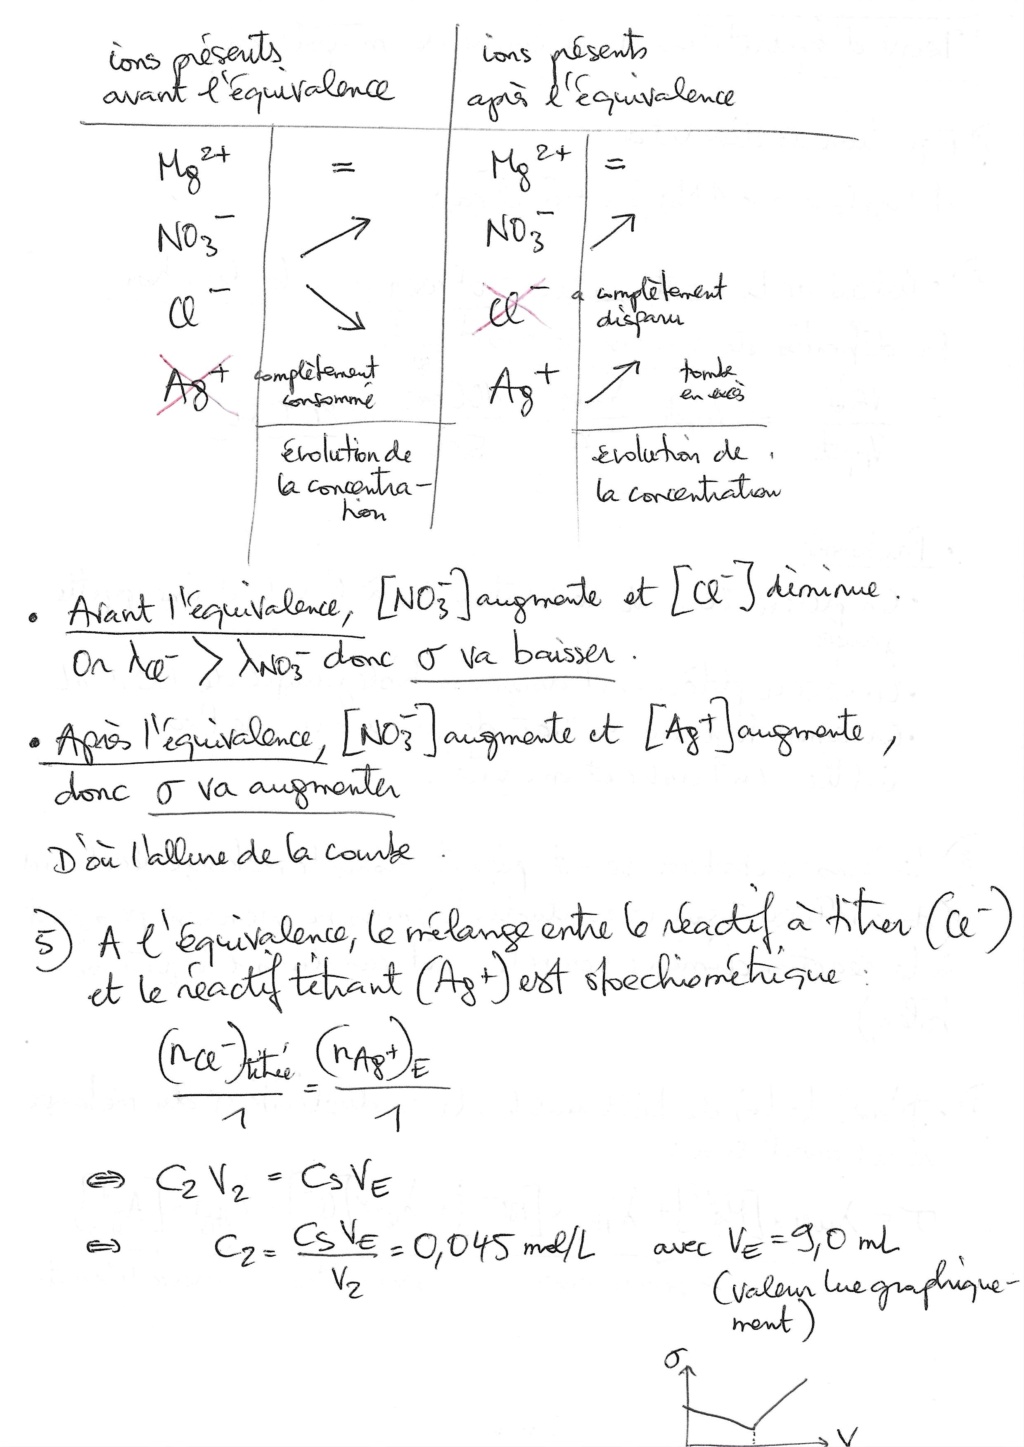 ions présents ions présents
avant l'équivalence après l'équivalence
Mg²⁺ = Mg²⁺ =
NO₃⁻ ↗ NO₃⁻ ↗
Cl⁻ ↘ Cl⁻ a complètement
disparu
Ag⁺ complètement Ag⁺ ↗ tombe
consommé en excès
évolution de évolution de
la concentra- la concentration
tion
• Avant l'équivalence, [NO₃⁻] augmente et [Cl⁻] diminue.
Or λCl⁻ > λNO₃⁻ donc σ va baisser.
• Après l'équivalence, [NO₃⁻] augmente et [Ag⁺] augmente,
donc σ va augmenter
D'où l'allure de la courbe.
5) A l'équivalence, le mélange entre le réactif à titrer (Cl⁻)
et le réactif titrant (Ag⁺) est stoechiométrique :
(nCl⁻)titrée / 1 = (nAg⁺)E / 1
⇔ C₂V₂ = CsVE
⇔ C₂ = CsVE / V₂ = 0,045 mol/L avec VE = 9,0 mL
(valeur lue graphique-
ment)
σ
V